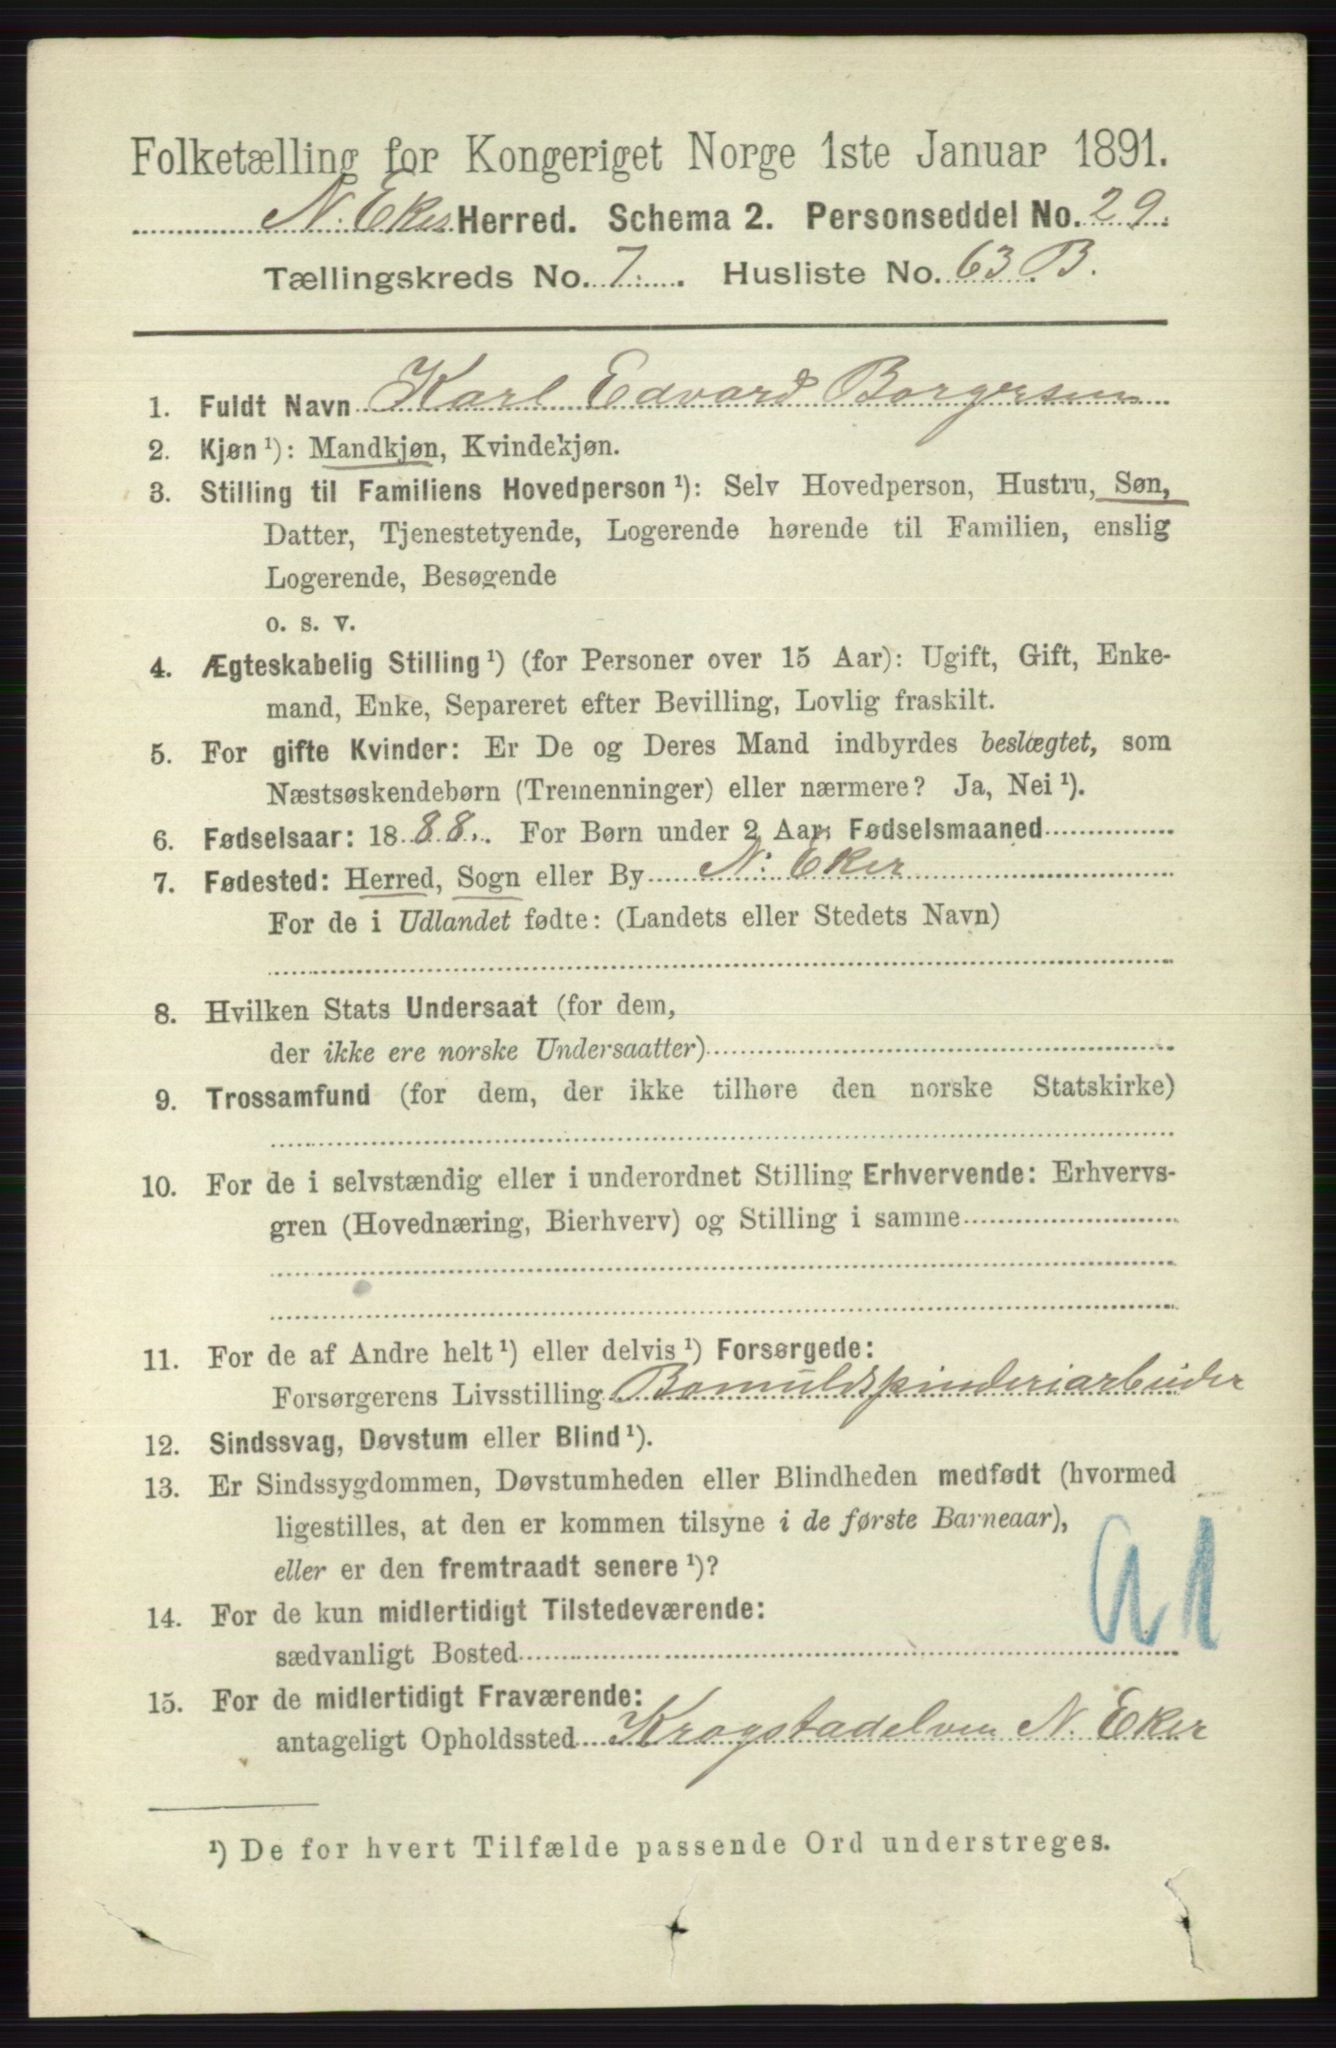 Folketælling for Kongeriget Norge 1ste Januar 1891.
N. Eker Herred. Schema 2. Personseddel No. 29.
Tællingskreds No. 7. Husliste No. 63 B.
1. Fuldt Navn Karl Edvard Borgersen
2. Kjøn ¹): Mandkjøn, Kvindekjøn.
3. Stilling til Familiens Hovedperson ¹): Selv Hovedperson, Hustru, Søn,
Datter, Tjenestetyende, Logerende hørende til Familien, enslig
Logerende, Besøgende
o. s. v.
4. Ægteskabelig Stilling ¹) (for Personer over 15 Aar): Ugift, Gift, Enke-
mand, Enke, Separeret efter Bevilling, Lovlig fraskilt.
5. For gifte Kvinder: Er De og Deres Mand indbyrdes beslægtet, som
Næstsøskendebørn (Tremenninger) eller nærmere? Ja, Nei ¹).
6. Fødselsaar: 1888. For Børn under 2 Aar: Fødselsmaaned
7. Fødested: Herred, Sogn eller By N: Eker
For de i Udlandet fødte: (Landets eller Stedets Navn)
8. Hvilken Stats Undersaat (for dem,
der ikke ere norske Undersaatter)
9. Trossamfund (for dem, der ikke tilhøre den norske Statskirke)
10. For de i selvstændig eller i underordnet Stilling Erhvervende: Erhvervs-
gren (Hovednæring, Bierhverv) og Stilling i samme
11. For de af Andre helt ¹) eller delvis ¹) Forsørgede:
Forsørgerens Livsstilling Bomuldspinderiarbeider
12. Sindssvag, Døvstum eller Blind ¹).
13. Er Sindssygdommen, Døvstumheden eller Blindheden medfødt (hvormed
ligestilles, at den er kommen tilsyne i de første Barneaar),
eller er den fremtraadt senere ¹)?
14. For de kun midlertidigt Tilstedeværende:
sædvanligt Bosted
15. For de midlertidigt Fraværende:
antageligt Opholdssted Krogstadelven N. Eker
¹) De for hvert Tilfælde passende Ord understreges.